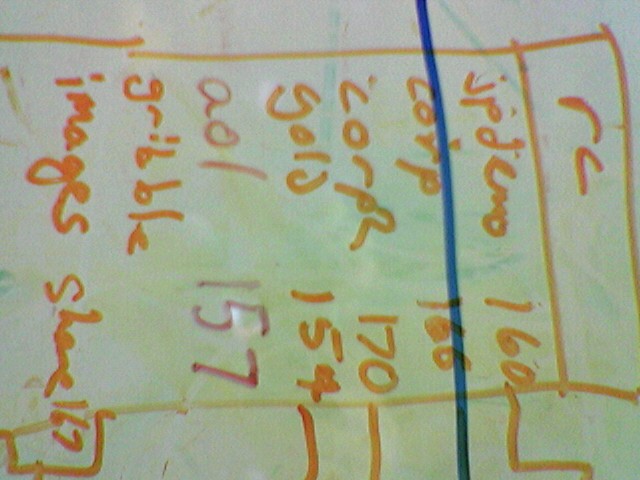 rc
jpdemo 160
corp 166
corp2 170
gold 154
aol 157
gribble
images share 167